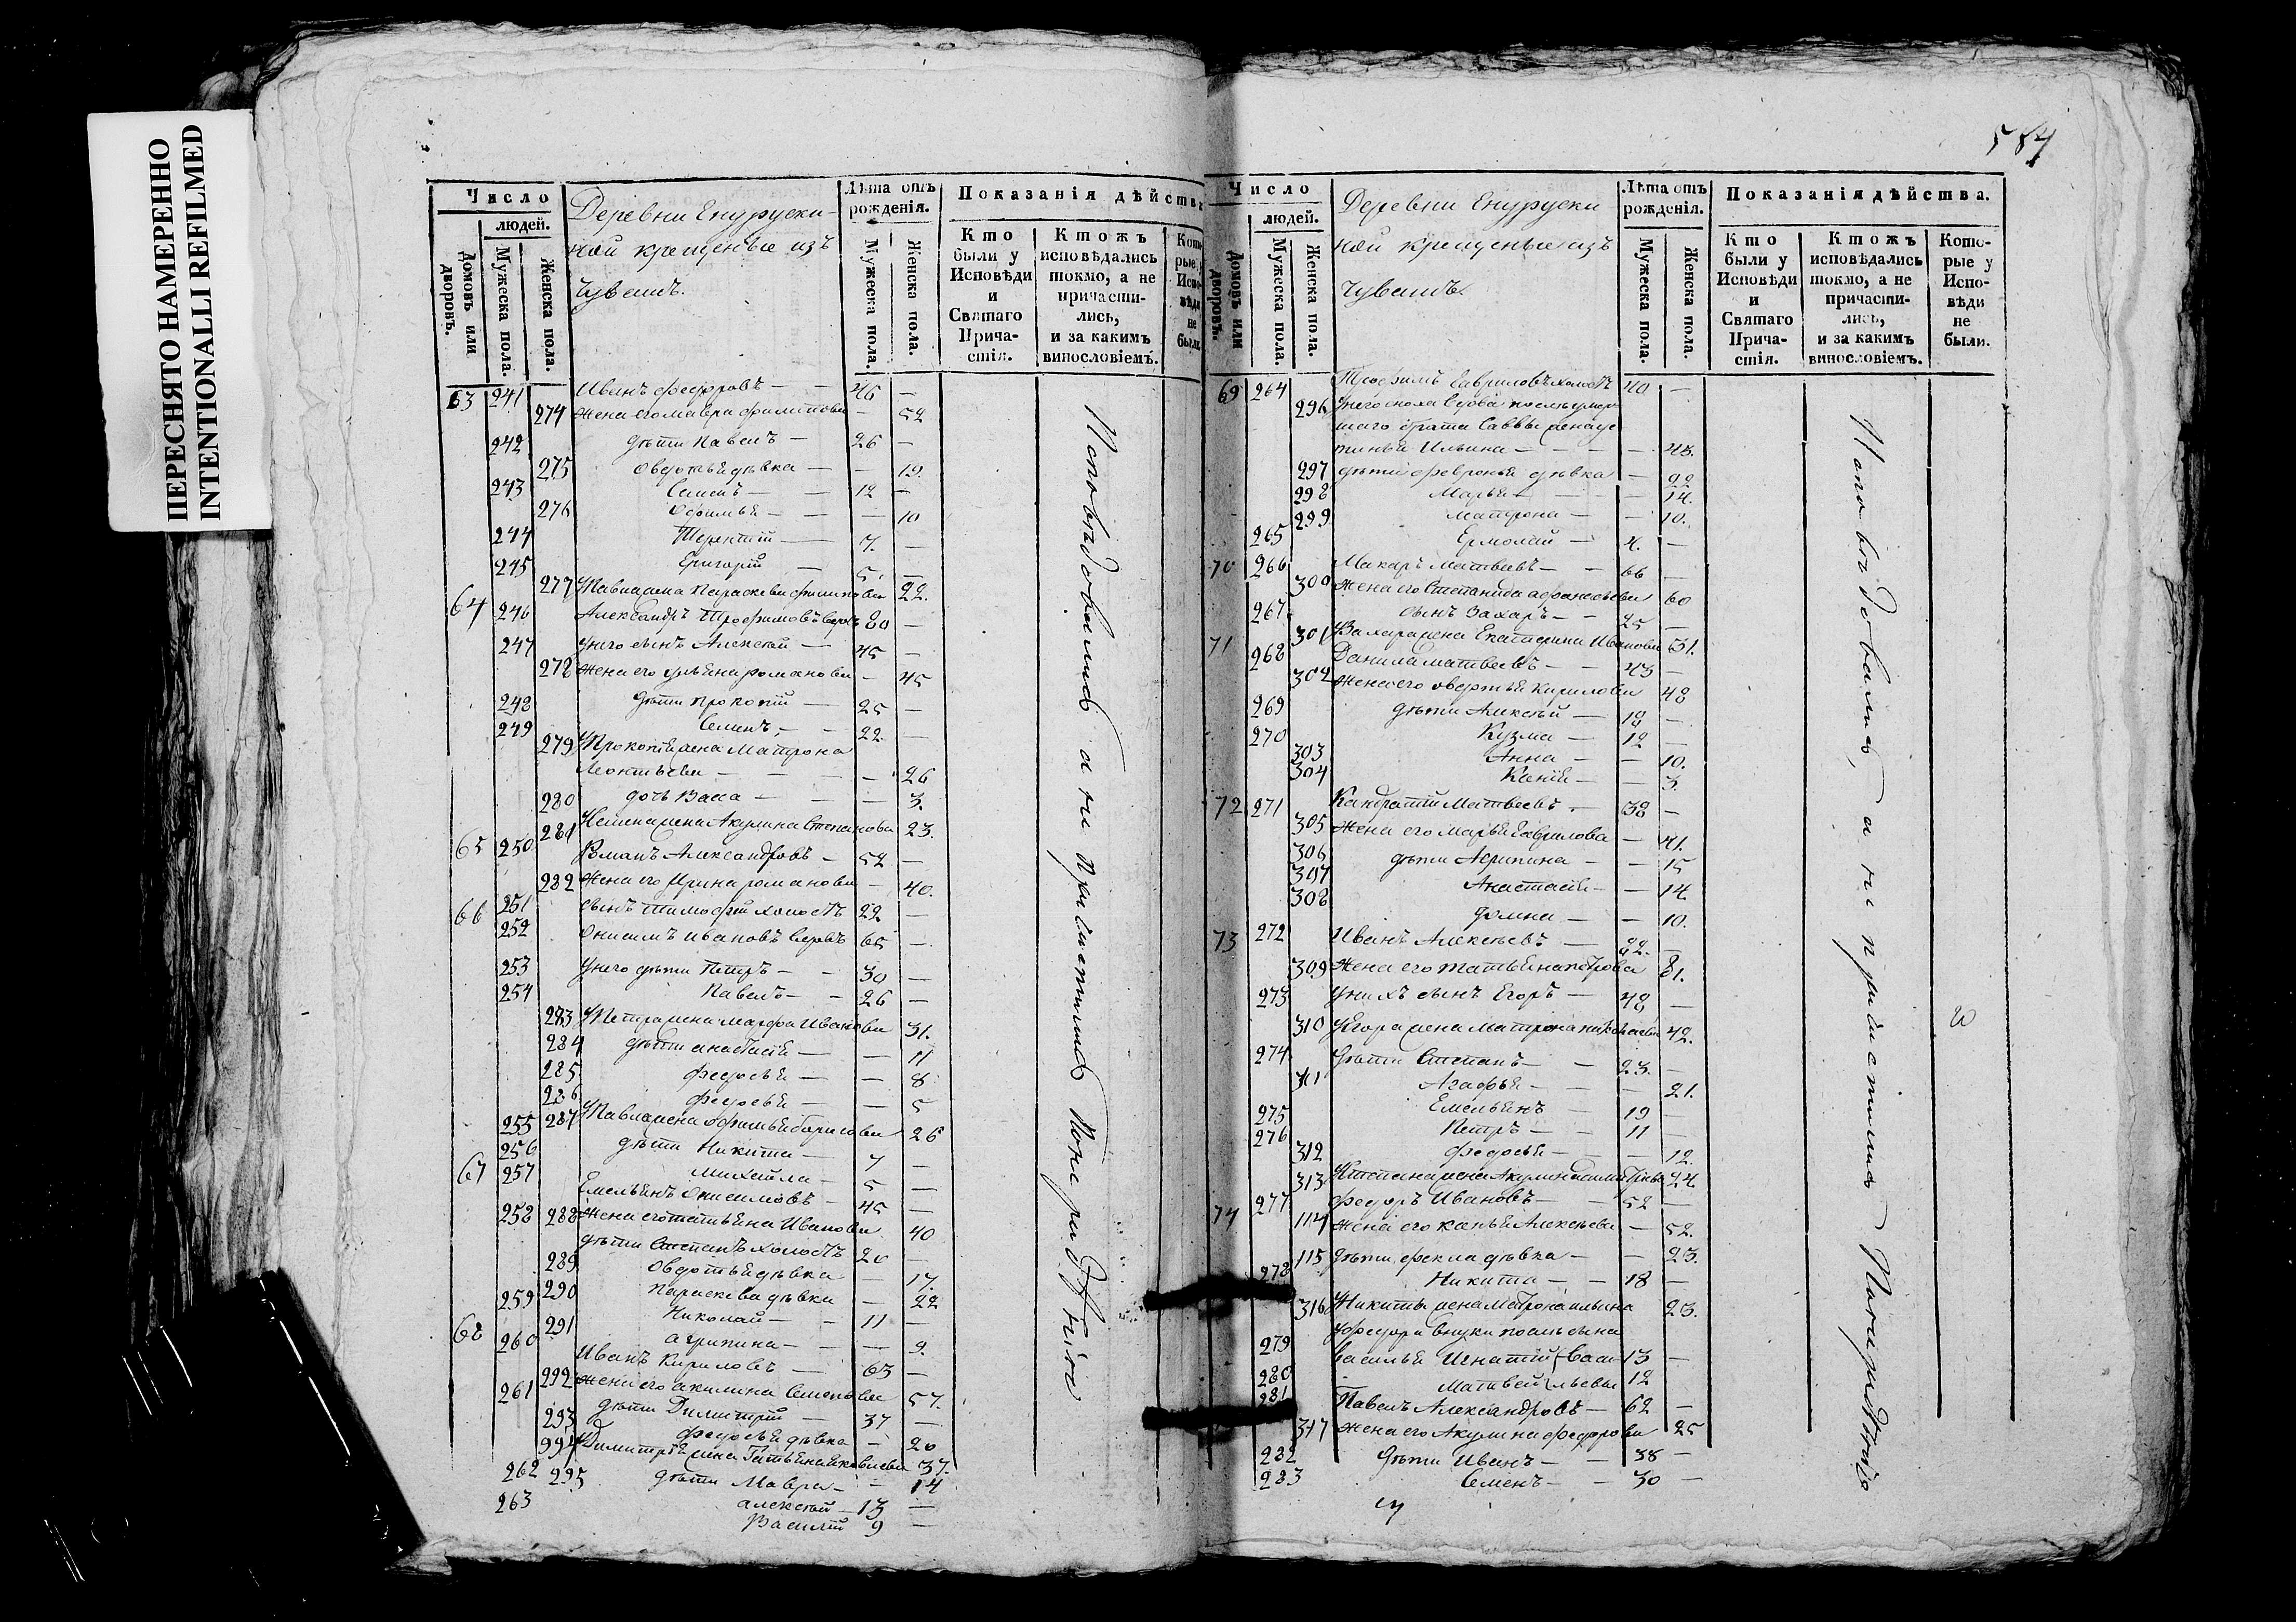 ПЕРЕСНЯТО НАМЕРЕННО
INTENTIONALLI REFILMED
Число
людей.
Домовъ или дворовъ.
Мужеска пола.
Женска пола.
Деревни Енурускиной крещеные изъ чувашъ.
Лѣта отъ рожденія.
Мужеска пола.
Женска пола.
Показанія дѣйства
Кто были у Исповѣди и Святаго Прича-стія.
Ктожъ исповѣдались токмо, а не причасти-лись, и за какимъ винословіемъ.
63 241 Иванъ Федоровъ — 46 —
274 жена его Мавра Филипова — 52
242 дѣти Павелъ — 26 —
275 Овдотья дѣвка — — 19.
243 Семенъ — 12 —
276 Офимья — — 10
244 Терентій — 7. —
245 Григорій — 5. —
277 У Павла жена Параскева Филипова 22.
64 246 Александръ Трофимовъ 80 —
247 У него сынъ Алексей — 45 —
278 жена его Ульяна Романова — 45
248 дѣти Прокопій — 25 —
249 Семенъ — 22 —
279 У Прокопья жена Матрона
Леонтьева — — 26
280 дочь Васа — — 3.
281 У Семена жена Акулина Степанова 23.
65 250 Романъ Александровъ — 52 —
282 Жена его Ирина Романова — 40.
251 сынъ Тимофей холостъ 22 —
66 252 Онисимъ Ивановъ 65 —
253 У него дѣти Петръ — 30 —
254 Павелъ — 26 —
283 У Петра жена Марфа Иванова 31.
284 дѣти Анастасія — — 11
285 Федосья — — 8
286 Федосья — — 5
287 У Павла жена Офимья Борисова 26
255 дѣти Никита — 7 —
256 Михайла — 5 —
67 257 Емельянъ Онисимовъ — 45 —
288 Жена его Татьяна Иванова 40
258 дѣти Степанъ холостъ 20 —
289 Овдотья дѣвка — 17.
290 Параскева дѣвка — 22
259 Николай — 11 —
291 Агрипина — — 9.
68 260 Иванъ Кириловъ — 63 —
292 жена его Акилина Семенова 57.
261 дѣти Димитрій — 37 —
293 Федосья дѣвка — 20
994 У Димитрія жена Татьяна Яковлева 37.
295 дѣти Мавра — — 14
262 Алексей — 13 —
263 Василій 9 —
Исповѣдовались а не причастились
584
Число
людей.
Домовъ или дворовъ.
Мужеска пола.
Женска пола.
Деревни Енурускиной крещеные изъ чувашъ.
Лѣта отъ рожденія.
Мужеска пола.
Женска пола.
Показанія дѣйства.
Кто были у Исповѣди и Святаго Прича-стія.
Ктожъ исповѣдались токмо, а не причасти-лись, и за какимъ винословіемъ.
Кото-рые у Испо-вѣди не были.
69 264 Трофимъ Гавриловъ холостъ 40 —
296 У него сноха вдова после умер
шаго брата Саввы жена
Ильина — — 48.
297 дѣти Февронья дѣвка — 22
298 Марья — — 14.
299 Матрона — — 10.
265 Ермолай — 4. —
70 266 Макаръ Матвеевъ — 66 —
300 Жена его Степанида Афанасьева 60
267 сынъ Захаръ — 25 —
301 У Захара жена Екатерина Иванова 31.
71 268 Данила Матвеевъ — 43 —
302 Жена его Овдотья Кирилова 48
269 дѣти Алексѣй — 18 —
270 Кузма — 12 —
303 Анна — — 10.
304 — — 3.
72 271 Кандратій Матвеевъ — 38 —
305 Жена его Марья Гаврилова — 41.
306 дѣти Агрипина — — 15
307 Анастасія — — 14
308 Домна — — 10.
73 272 Иванъ Алексѣевъ — 82. —
309 Жена его Татьяна Петрова 81.
273 У нихъ сынъ Егоръ — 48 —
310 У Егора жена Матрона Николаева 42.
274 дѣти Степанъ — 23. —
311 Агафья — — 21.
275 Емельянъ — 19 —
276 Петръ — 11 —
312 Федосья — — 12.
313 У Степана жена Акулина 24
74 277 Федоръ Ивановъ — 52 —
114 Жена его Алексѣева — 52.
115 дѣти Фекла дѣвка — — 23.
278 Никита — 18 —
316 У Никиты жена Матрона Ильина 23.
У Федора внуки после сына
279 Василья Игнатій Васи- 13 —
280 Матвей льевы 12
281 Павелъ Александровъ — 62 —
317 Жена его Акулина Федорова 25
282 дѣти Иванъ — 38 —
283 Семенъ — 30 —
Исповѣдовались, а не причастились